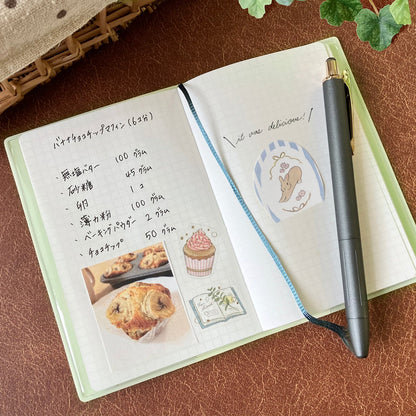 バナナチョコチップマフィン(6コ分)
・無塩バター 100グラム
・砂糖 45グラム
・卵 1コ
・薄力粉 100グラム
・ベーキングパウダー 2グラム
・チョコチップ 50グラム
\ it was delicious! /